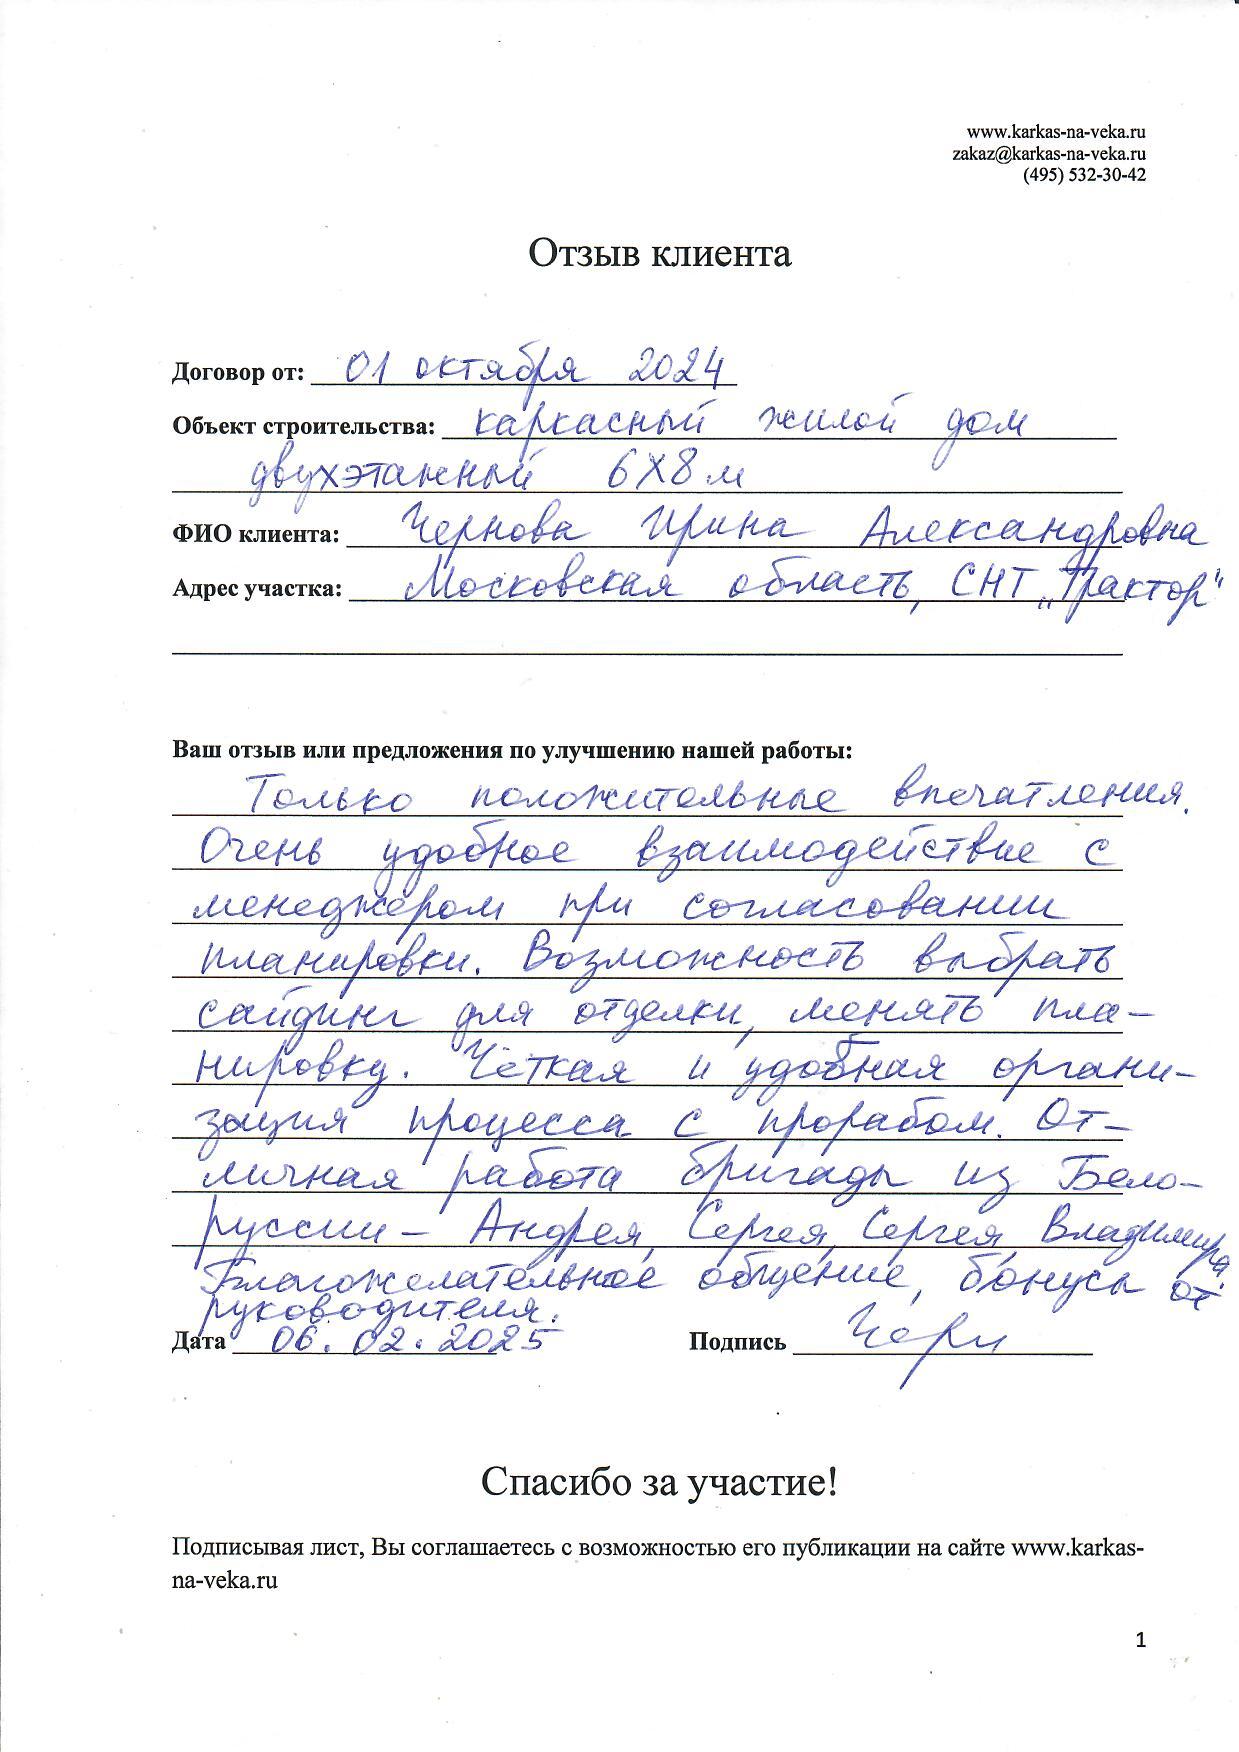 www.karkas-na-veka.ru
zakaz@karkas-na-veka.ru
(495) 532-30-42
Отзыв клиента
Договор от: 01 октября 2024
Объект строительства: каркасный жилой дом
двухэтажный 6х8 м
ФИО клиента: Чернова Ирина Александровна
Адрес участка: Московская область, СНТ „Трактор"
Ваш отзыв или предложения по улучшению нашей работы:
Только положительные впечатления.
Очень удобное взаимодействие с
менеджером при согласовании
планировки. Возможность выбрать
сайдинг для отделки, менять пла-
нировку. Чёткая и удобная органи-
зация процесса с прорабом. От-
личная работа бригады из Бело-
руссии - Андрея, Сергея, Сергея, Владимира.
Благожелательное общение, бонусы от
руководителя.
Дата 06.02.2025 Подпись Черн
Спасибо за участие!
Подписывая лист, Вы соглашаетесь с возможностью его публикации на сайте www.karkas-
na-veka.ru
1